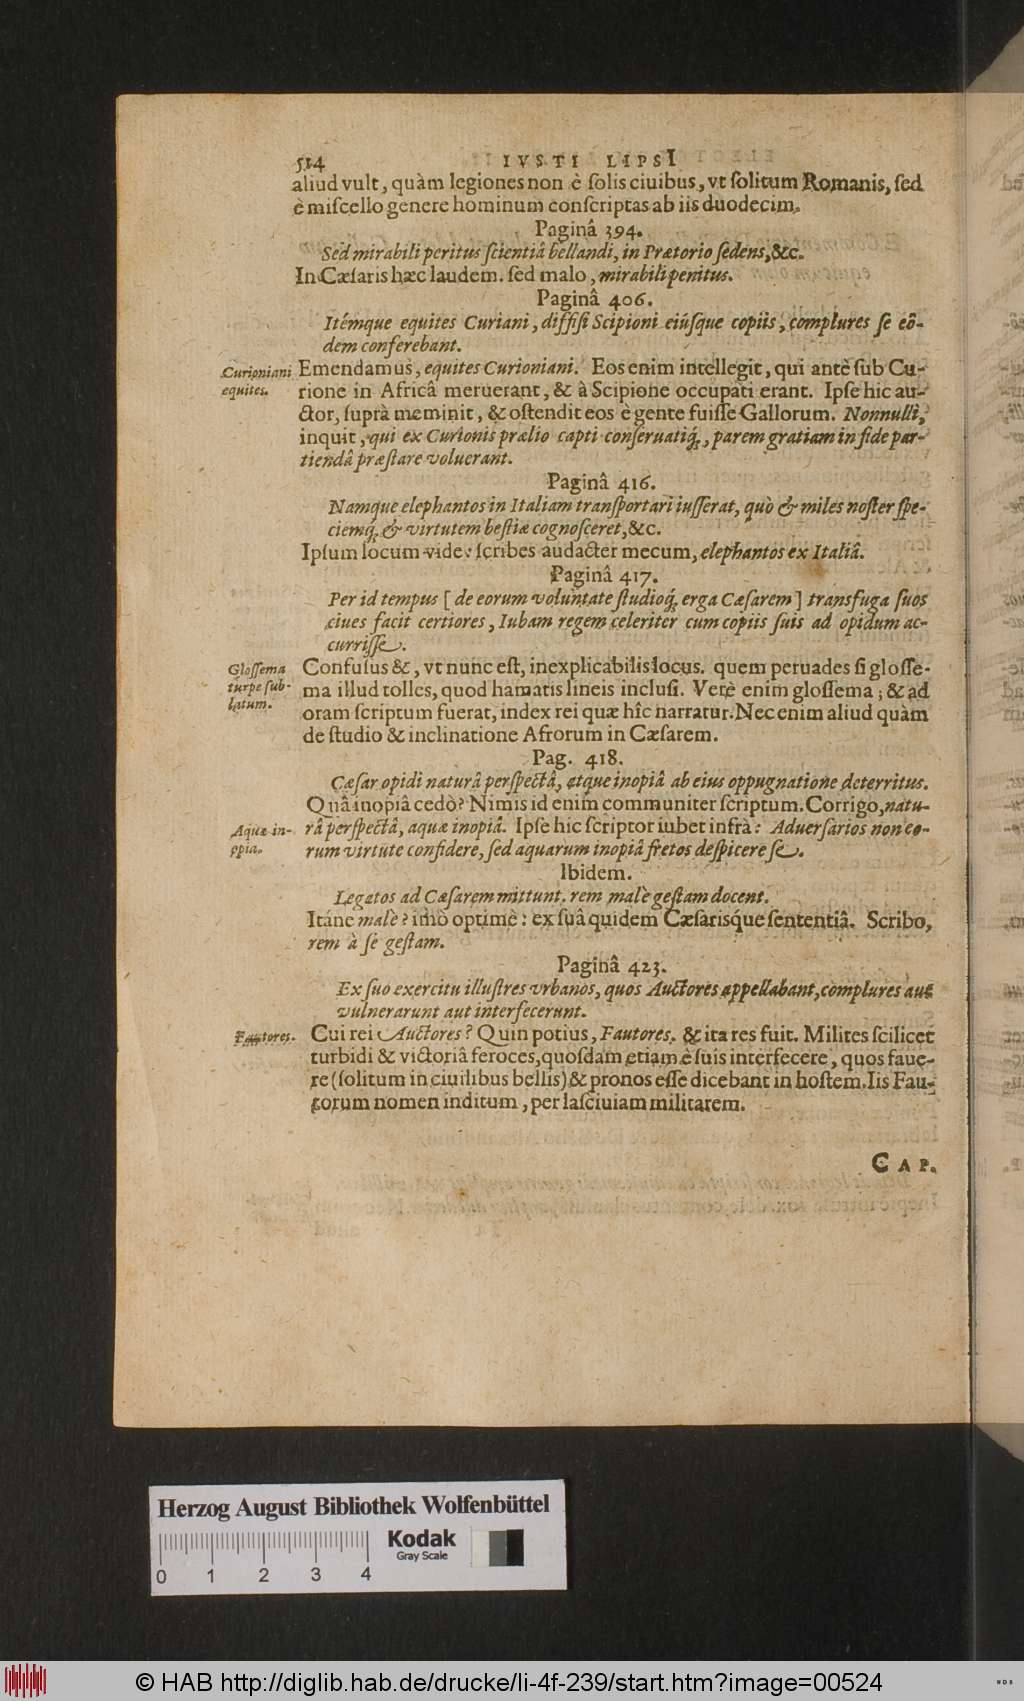 514 IVSTI LIPSI
aliud vult, quàm legiones non è ſolis ciuibus, vt ſolitum Romanis, ſed
è miſcello genere hominum conſcriptas ab iis duodecim.
Paginâ 394.
Sed mirabili peritus ſcientiâ bellandi, in Prætorio ſedens, &c.
In Cæſaris hæc laudem. ſed malo, mirabili penitus.
Paginâ 406.
Itémque equites Curiani, diffiſi Scipioni eiúſque copiis, complures ſe eô-
dem conferebant.
Curioniani Emendamus, equites Curioniani. Eos enim intellegit, qui antè ſub Cu-
equites. rione in Africâ meruerant, & à Scipione occupati erant. Ipſe hic au-
ctor, ſuprà meminit, & oſtendit eos è gente fuiſſe Gallorum. Nonnulli,
inquit, qui ex Curionis prælio capti conſeruatiq́, parem gratiam in fide par-
tiendâ præſtare voluerant.
Paginâ 416.
Namque elephantos in Italiam tranſportari iuſſerat, quò & miles noſter ſpe-
ciemq́, & virtutem beſtiæ cognoſceret, &c.
Ipſum locum vide: ſcribes audacter mecum, elephantos ex Italiâ.
Paginâ 417.
Per id tempus [ de eorum voluntate ſtudioq́, erga Cæſarem ] transfuga ſuos
ciues facit certiores, Iubam regem celeriter cum copiis ſuis ad opidum ac-
curriſſe.
Gloſſema Confuſus &, vt nunc eſt, inexplicabilis locus. quem peruades ſi gloſſe-
turpe ſub- ma illud tolles, quod hamatis lineis incluſi. Verè enim gloſſema; & ad
latum. oram ſcriptum fuerat, index rei quæ hîc narratur. Nec enim aliud quàm
de ſtudio & inclinatione Afrorum in Cæſarem.
Pag. 418.
Cæſar opidi naturâ perſpectâ, atque inopiâ ab eius oppugnatione deterritus.
Quâ inopiâ cedò? Nimis id enim communiter ſcriptum. Corrigo, natu-
Aquæ in- râ perſpectâ, aquæ inopiâ. Ipſe hic ſcriptor iubet infrà: Aduerſarios non eo-
opia. rum virtute confidere, ſed aquarum inopiâ fretos deſpicere ſe.
Ibidem.
Legatos ad Cæſarem mittunt. rem malè geſtam docent.
Itáne malè? imò optimè: ex ſuâ quidem Cæſarisq́ue ſententiâ. Scribo,
rem à ſe geſtam.
Paginâ 423.
Ex ſuo exercitu illuſtres vrbanos, quos Auctores appellabant, complures aut
vulnerarunt aut interfecerunt.
Fautores. Cui rei Auctores? Quin potius, Fautores. & ita res fuit. Milites ſcilicet
turbidi & victoriâ feroces, quoſdam etiam è ſuis interfecere, quos faue-
re (ſolitum in ciuilibus bellis) & pronos eſſe dicebant in hoſtem. Iis Fau-
torum nomen inditum, per laſciuiam militarem.
CAP.
Herzog August Bibliothek Wolfenbüttel
Kodak
Gray Scale
0 1 2 3 4
© HAB http://diglib.hab.de/drucke/li-4f-239/start.htm?image=00524